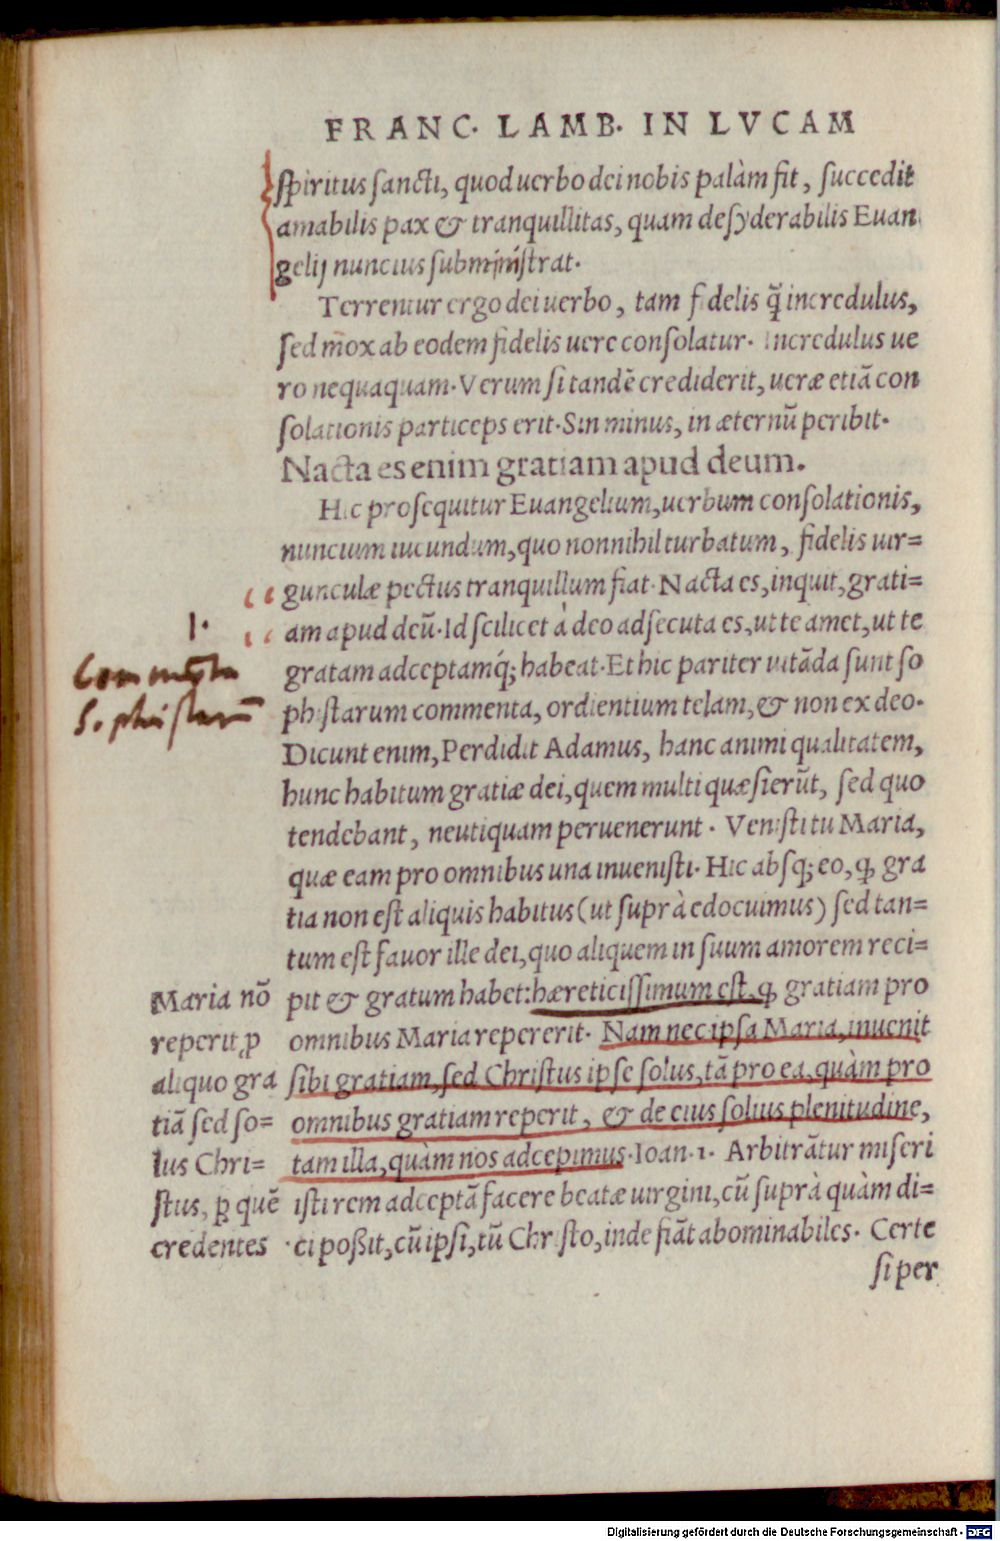 FRANC. LAMB. IN LVCAM
spiritus sancti, quod uerbo dei nobis palàm fit, succedit
amabilis pax & tranquillitas, quam desyderabilis Euan
gelij nuncius subministrat.
Terrentur ergo dei uerbo, tam fidelis q̃ incredulus,
sed mox ab eodem fidelis uere consolatur. Incredulus ue
ro nequaquam. Verum si tandẽ crediderit, ueræ etiã con
solationis particeps erit. Sin minus, in æternũ peribit.
Nacta es enim gratiam apud deum.
Hic prosequitur Euangelium, uerbum consolationis,
nuncium iucundum, quo nonnihil turbatum, fidelis uir=
gunculæ pectus tranquillum fiat. Nacta es, inquit, grati=
am apud deũ. Id scilicet à deo adsecuta es, ut te amet, ut te
gratam adceptamq́; habeat. Et hic pariter uitãda sunt so
phistarum commenta, ordientium telam, & non ex deo.
Dicunt enim, Perdidit Adamus, hanc animi qualitatem,
hunc habitum gratiæ dei, quem multi quæsierũt, sed quo
tendebant, neutiquam peruenerunt. Venisti tu Maria,
quæ eam pro omnibus una inuenisti. Hic absq; eo, ꝙ gra
tia non est aliquis habitus (ut suprà edocuimus) sed tan=
tum est fauor ille dei, quo aliquem in suum amorem reci=
pit & gratum habet: hæreticissimum est, ꝙ gratiam pro
omnibus Maria repererit. Nam nec ipsa Maria, inuenit
sibi gratiam, sed Christus ipse solus, tã pro ea, quàm pro
omnibus gratiam reperit, & de eius solius plenitudine,
tam illa, quàm nos adcepimus. Ioan. 1. Arbitrãtur miseri
isti rem adceptã facere beatæ uirgini, cũ suprà quàm di=
ci poßit, cũ ipsi, tũ Christo, inde fiãt abominabiles. Certe
si per
1.
Commẽta
Sophistarũ
Maria nõ
reperit, ꝓ
aliquo gra
tiã sed so=
lus Chri=
stus, ꝑ quẽ
credentes
Digitalisierung gefördert durch die Deutsche Forschungsgemeinschaft - DFG